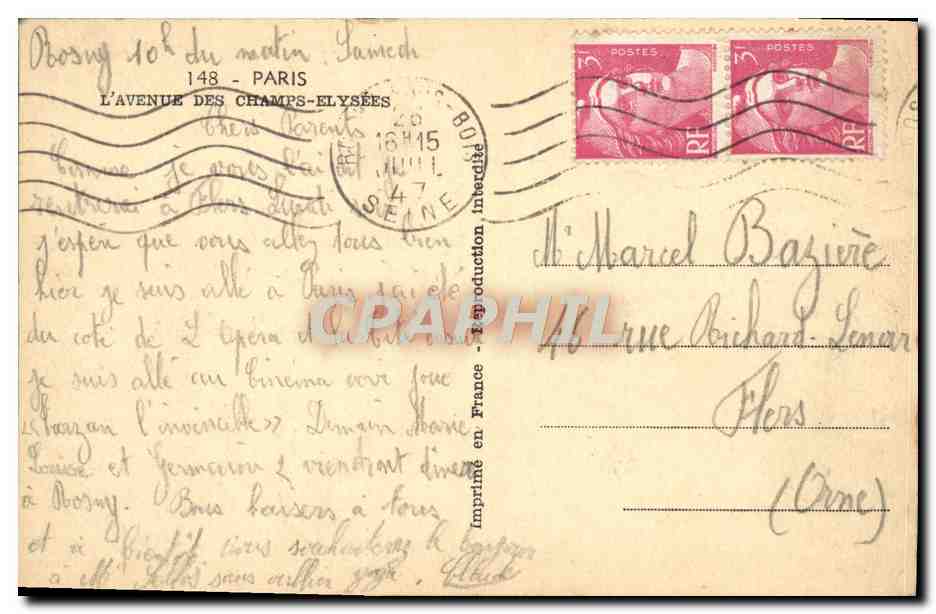 Rosny 10h du matin Samedi
148 - PARIS
L'AVENUE DES CHAMPS-ELYSÉES
Chers Parents
Comme je vous l'ai dit je
rentrerai à Flers
j'espère que vous allez tous bien
hier je suis allé à Paris j'ai été
du coté de L'Opéra et
je suis allé au cinéma voir jouer
«Tarzan l'invincible» Demain Marie
Louise et viendront dîner
à Rosny. Bons baisers à tous
et à bientôt vous souhaiterez le bonjour
à Mr sans oublier
26
16H15
JUIL
47
SEINE
POSTES
3F
RF
POSTES
3F
RF
Imprimé en France - Reproduction interdite
CPAPHIL
Mr Marcel Bazière
46 rue Richard-Lenoir
Flers
(Orne)